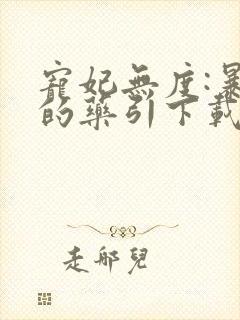 寵妃無度:暴
的藥引下載
走邪兒